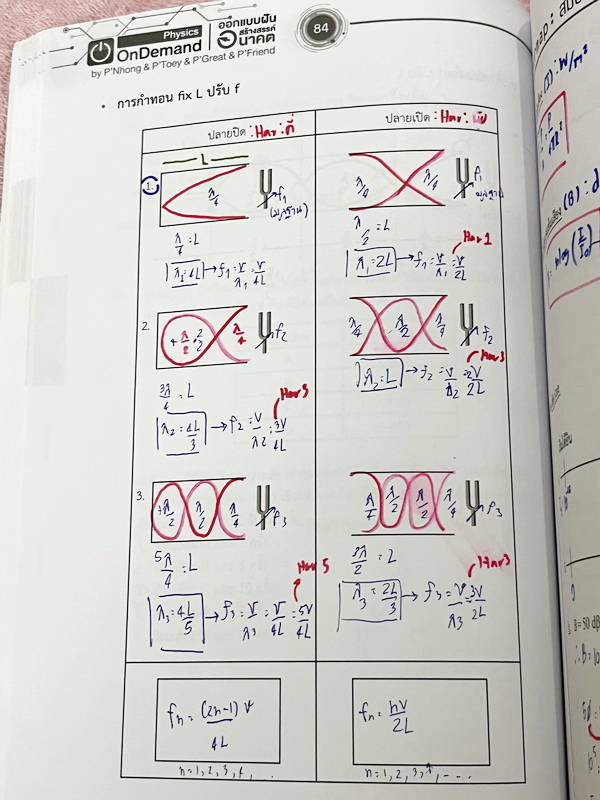 Physics
OnDemand
ออกแบบฝัน
สร้างสรรค์
อนาคต
by P'Nhong & P'Toey & P'Great & P'Friend
84
• การกำทอน fix L ปรับ f
ปลายปิด : Har : คี่
ปลายเปิด : Har : นับ
L
1.
λ/4
f₁
(มูลฐาน)
λ/4 = L
λ₁ = 4L → f₁ = v/λ₁ = v/4L
λ/4 λ/4
f₁
มูลฐาน
λ/2 = L
Har 1
λ₁ = 2L → f₁ = v/λ₁ = v/2L
2.
λ/2 λ/4
f₂
3λ/4 = L
Har 3
λ₂ = 4L/3 → f₂ = v/λ₂ = 3v/4L
λ/4 λ/2 λ/4
f₂
λ₂ = L → f₂ = v/λ₂ = 2v/2L
3.
λ/2 λ/2 λ/4
f₃
5λ/4 = L
Har 5
λ₃ = 4L/5 → f₃ = v/λ₃ = v/4L = 5v/4L
λ/4 λ/2 λ/2 λ/4
f₃
= L
Har 3
λ₃ = 2L/3 → f₃ = v/λ₃ = 3v/2L
fn = (2n-1) v/4L
n = 1, 2, 3, 4, ...
fn = nv/2L
n = 1, 2, 3, 4, ...